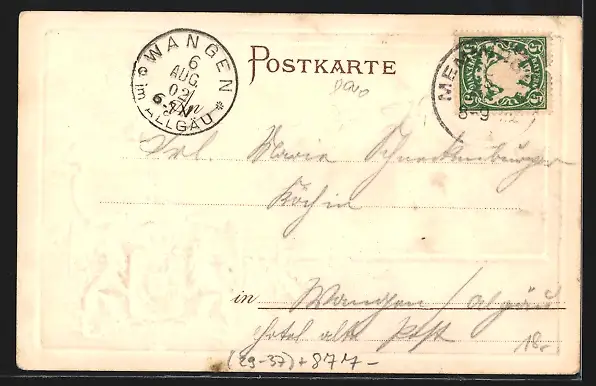 WANGEN
6
AUG.
02
6-7N
im ALLGÄU
POSTKARTE
MEM
8-9
5 5
Frl. Marie Schneckenburger
Köchin
in Wangen / Algäu
Hotel alte Post
18.-
(29-37) + 877-